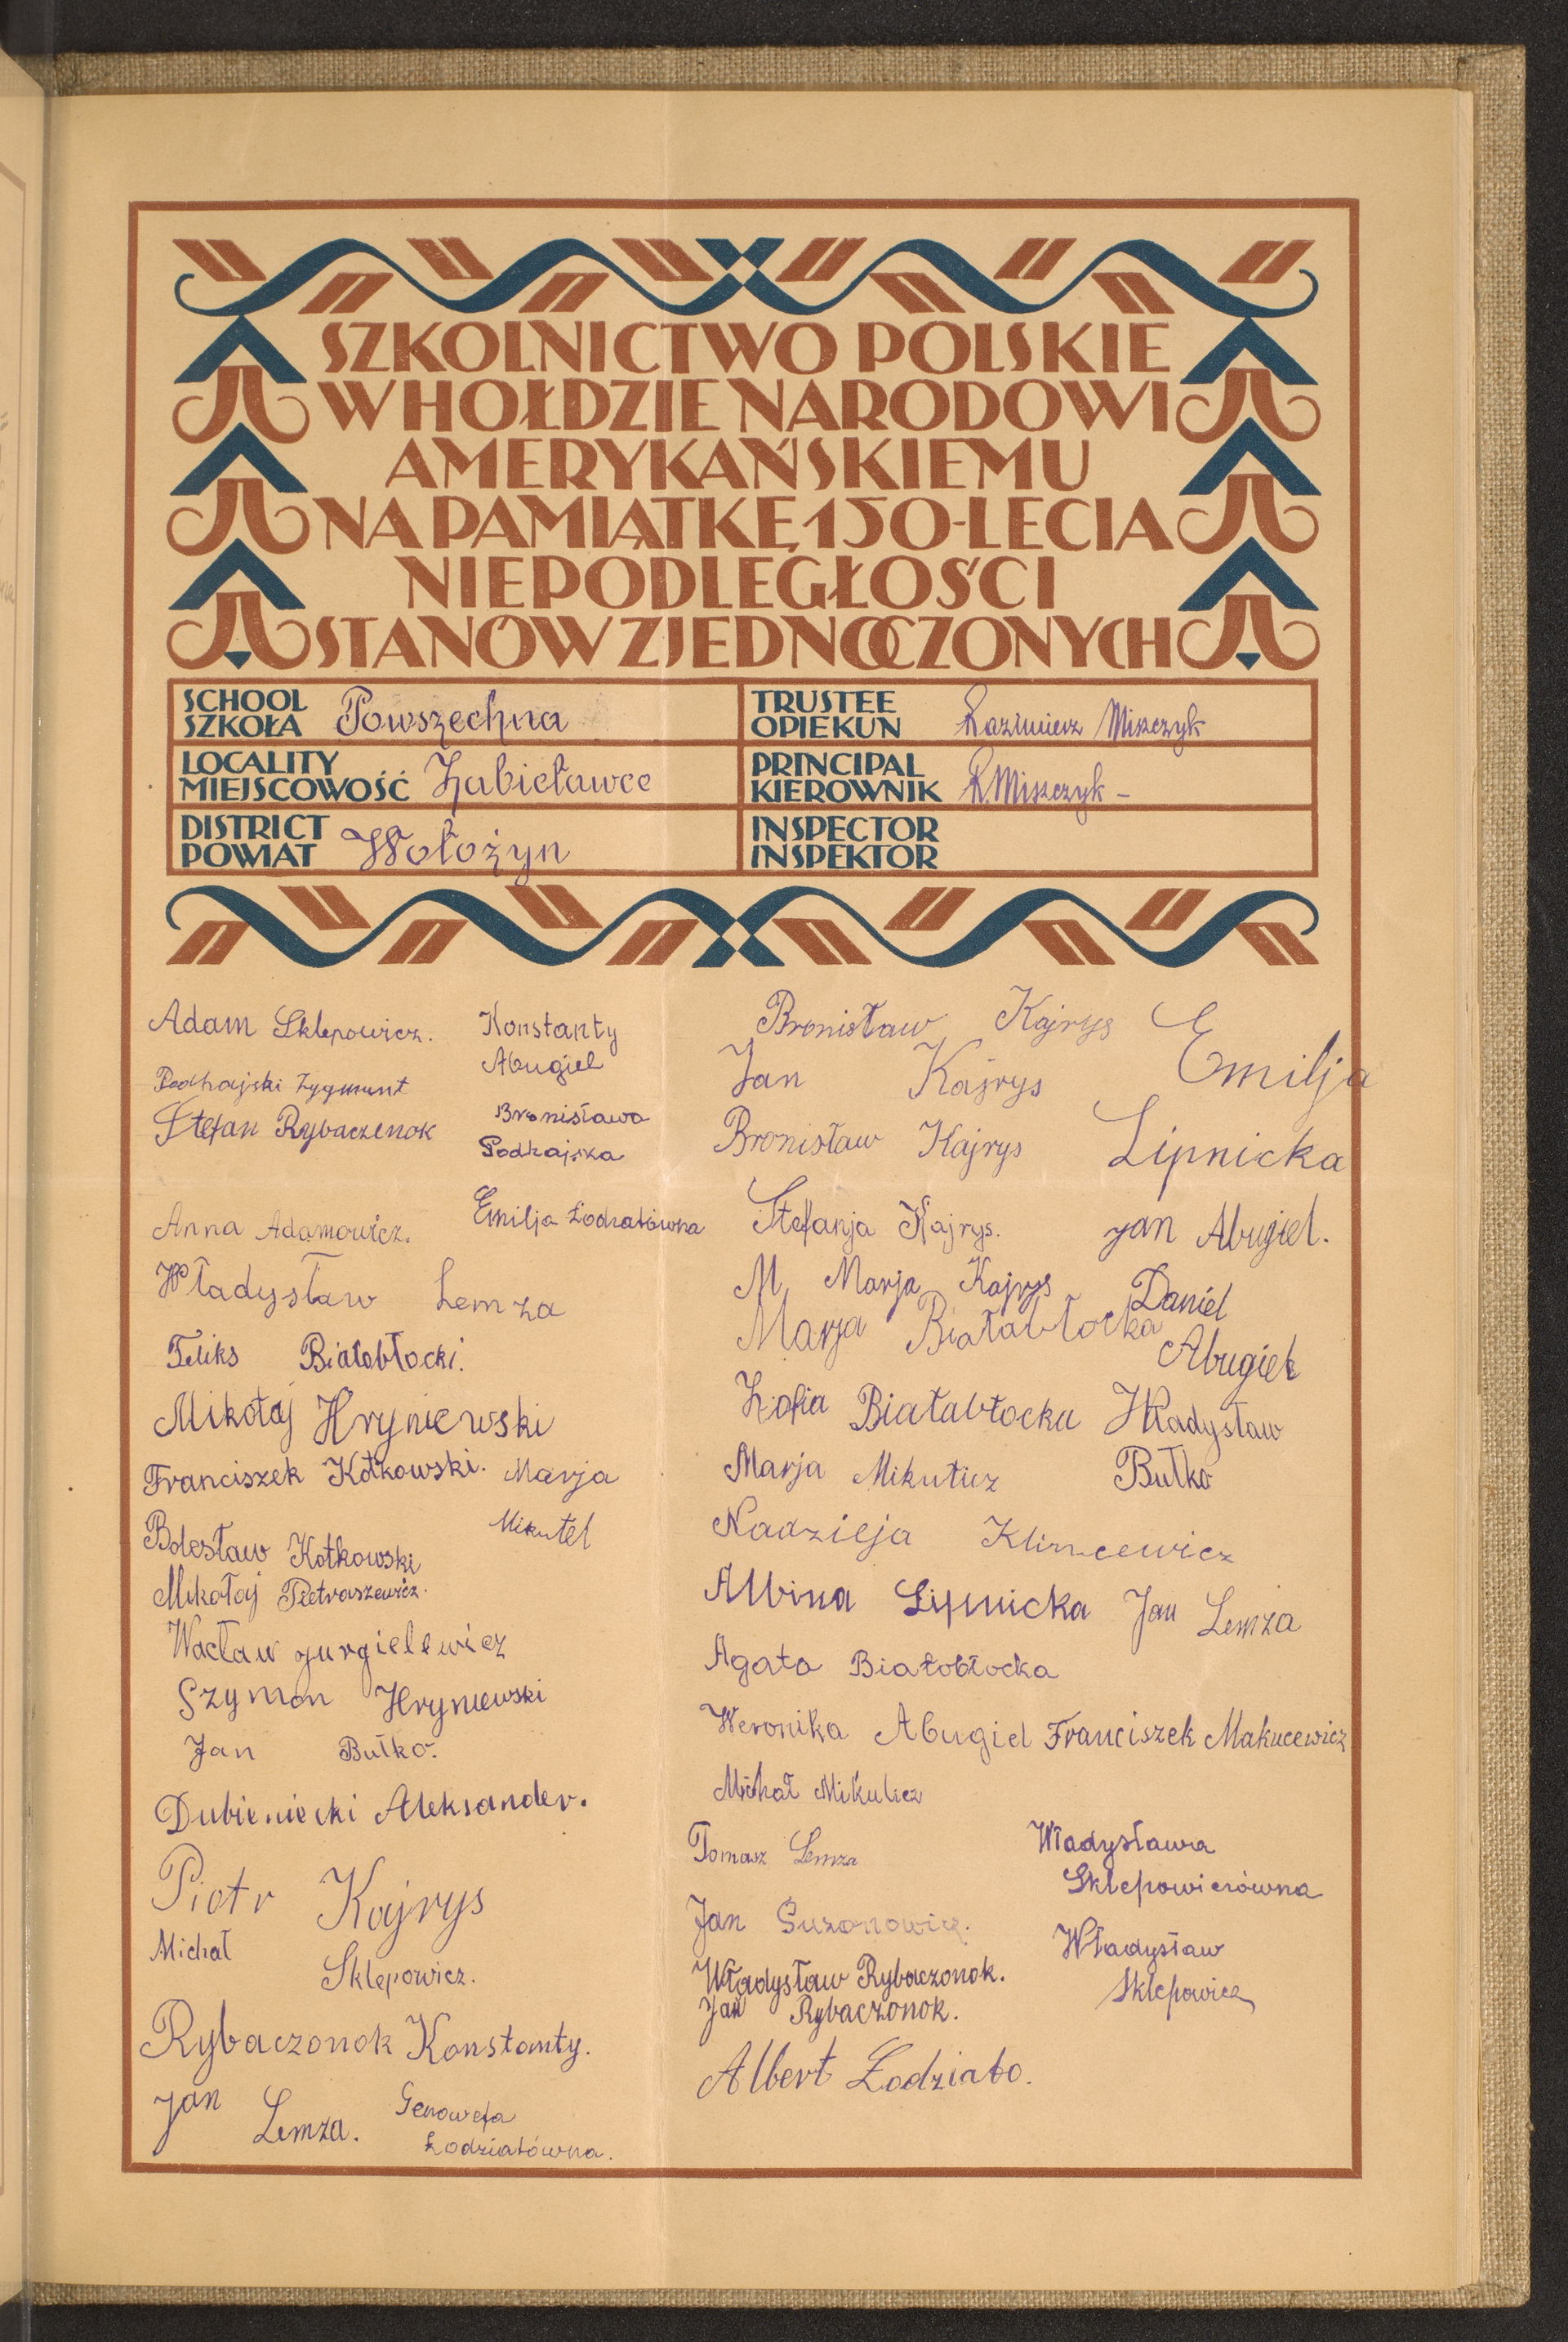 SZKOLNICTWO POLSKIE
W HOŁDZIE NARODOWI
AMERYKAŃSKIEMU
NA PAMIĄTKĘ 150-LECIA
NIEPODLEGŁOŚCI
STANÓW ZJEDNOCZONYCH
SCHOOL
SZKOŁA Powszechna
TRUSTEE
OPIEKUN Kazimierz Miszczyk
LOCALITY
MIEJSCOWOŚĆ Zabieławce
PRINCIPAL
KIEROWNIK K. Miszczyk -
DISTRICT
POWIAT Wołożyn
INSPECTOR
INSPEKTOR
Adam Sklepowicz.
Podhajski Zygmunt
Stefan Rybaczenok
Konstanty
Abugiel
Bronisława
Podhajska
Anna Adamowicz.
Emilja Łodziatówna
Władysław Lemza
Feliks Białobłocki.
Mikołaj Hryniewski
Franciszek Kotkowski.
Marja
Mikutel
Bolesław Kotkowski
Mikołaj Pietraszewicz.
Wacław Jurgielewicz
Szymon Hryniewski
Jan Bułko.
Dubieniecki Aleksander.
Piotr Kajrys
Michał
Sklepowicz.
Rybaczonok Konstanty.
Jan
Lemza.
Genowefa
Łodziatówna.
Bronisław Kajrys
Jan Kajrys
Bronisław Kajrys
Emilja
Lipnicka
Stefanja Kajrys.
Jan Abugiel.
M Marja Kajrys
Daniel
Abugiel
Marja Białabłocka
Zofia Białabłocka
Władysław
Bułko
Marja Mikulicz
Nadzieja Klimcewicz
Albina Lipnicka
Jan Lemza
Agata Białobłocka
Weronika Abugiel
Franciszek Makucewicz
Michał Mikulicz
Tomasz Lemza
Władysława
Sklepowiczówna
Jan Suzonowicz.
Władysław
Sklepowicz
Władysław Rybaczonok.
Jan Rybaczonok.
Albert Łodziato.